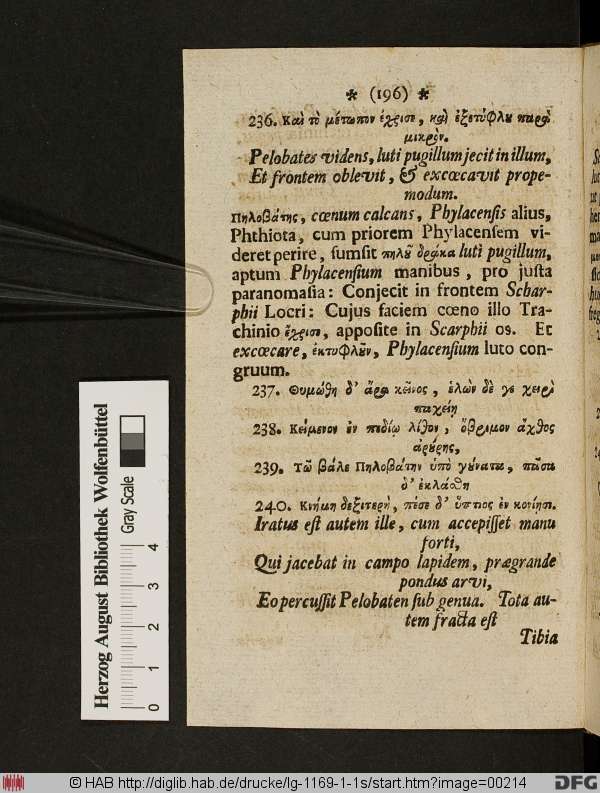 * (196) *
236. Καὶ τὸ μέτωπον ἔχρισε, καὶ ἐξετύφλου παρὰ
μικρὸν.
Pelobates videns, luti pugillum jecit in illum,
Et frontem oblevit, & excœcavit prope-
modum.
Πηλοβάτης, cœnum calcans, Phylacensis alius,
Phthiota, cum priorem Phylacensem vi-
deret perire, sumsit πηλοῦ δράκα luti pugillum,
aptum Phylacensium manibus, pro justa
paranomasia: Conjecit in frontem Schar-
phii Locri: Cujus faciem cœno illo Tra-
chinio ἔχρισε, apposite in Scarphii os. Et
excœcare, ἐκτυφλοῦν, Phylacensium luto con-
gruum.
237. Θυμώθη δ' ἄρα κεῖνος, ἑλὼν δέ γε χειρὶ
παχείῃ
238. Κείμενον ἐν πεδίῳ λίθον, ὄβριμον ἄχθος
ἀρούρης,
239. Τῷ βάλε Πηλοβάτην ὑπὸ γούνατα, πᾶσα
δ' ἐκλάσθη
240. Κνήμη δεξιτερὴ, πέσε δ' ὕπτιος ἐν κονίῃσι.
Iratus est autem ille, cum accepisset manu
forti,
Qui jacebat in campo lapidem, prægrande
pondus arvi,
Eo percussit Pelobaten sub genua. Tota au-
tem fracta est
Tibia
Herzog August Bibliothek Wolfenbüttel
Gray Scale
0 1 2 3 4
© HAB http://diglib.hab.de/drucke/lg-1169-1-1s/start.htm?image=00214
DFG